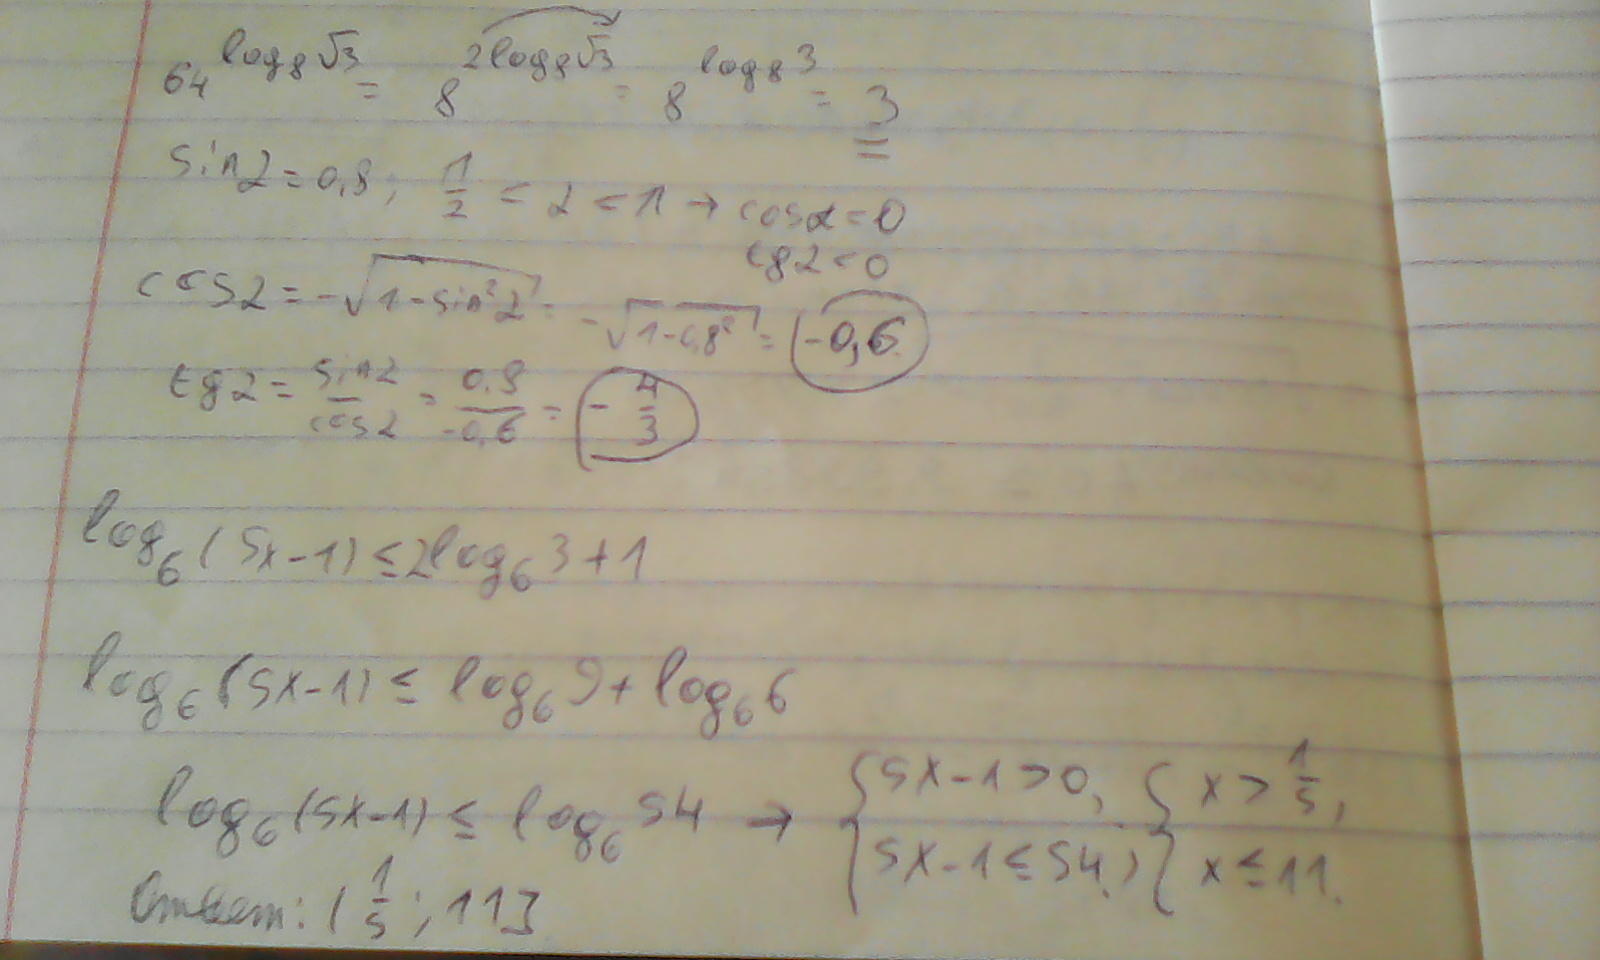 64^{log_8 √3} = 8^{2log_8 √3} = 8^{log_8 3} = 3
sin α = 0,8; π/2 < α < π → cos α < 0
tg α < 0
cos α = -√(1 - sin² α) = -√(1 - 0,8²) = -0,6
tg α = sin α / cos α = 0,8 / -0,6 = -4/3
log_6 (5x-1) ≤ 2log_6 3 + 1
log_6 (5x-1) ≤ log_6 9 + log_6 6
log_6 (5x-1) ≤ log_6 54 → { 5x-1 > 0, { x > 1/5,
5x-1 ≤ 54. x ≤ 11.
Ответ: (1/5; 11]